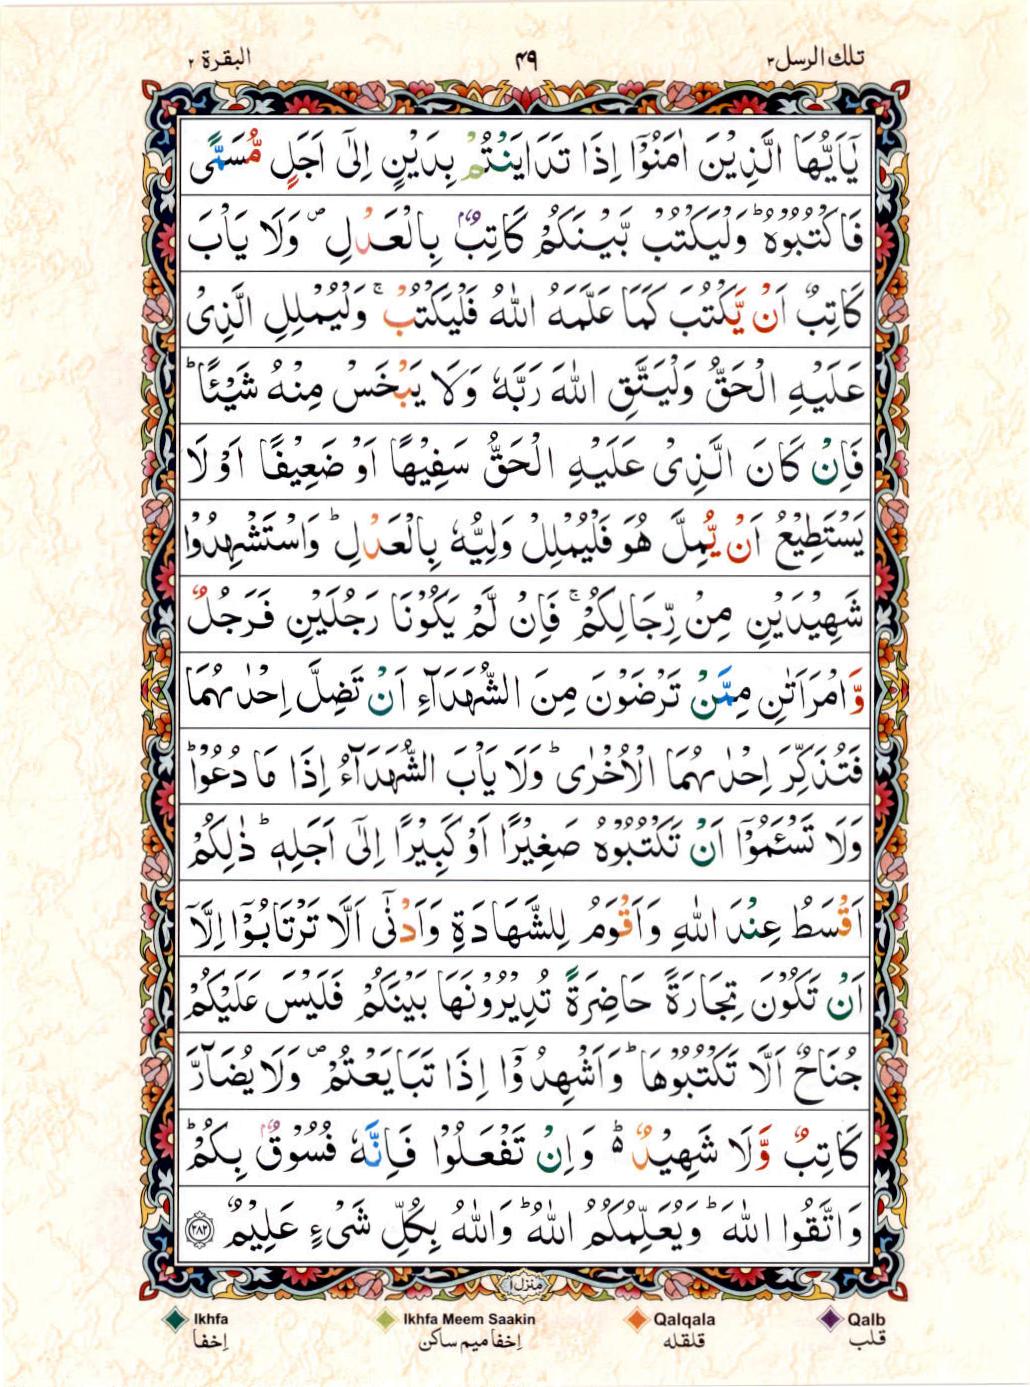 تلك الرسل ۳
۴۹
البقرة ۲
يٰۤاَيُّهَا الَّذِيْنَ اٰمَنُوْۤا اِذَا تَدَايَنْتُمْ بِدَيْنٍ اِلٰۤى اَجَلٍ مُّسَمًّى
فَاكْتُبُوْهُ ؕ وَلْيَكْتُبْ بَّيْنَكُمْ كَاتِبٌۢ بِالْعَدْلِ ۪ وَلَا يَاْبَ
كَاتِبٌ اَنْ يَّكْتُبَ كَمَا عَلَّمَهُ اللّٰهُ فَلْيَكْتُبْ ۚ وَلْيُمْلِلِ الَّذِيْ
عَلَيْهِ الْحَقُّ وَلْيَتَّقِ اللّٰهَ رَبَّهٗ وَلَا يَبْخَسْ مِنْهُ شَيْـًٔا ؕ
فَاِنْ كَانَ الَّذِيْ عَلَيْهِ الْحَقُّ سَفِيْهًا اَوْ ضَعِيْفًا اَوْ لَا
يَسْتَطِيْعُ اَنْ يُّمِلَّ هُوَ فَلْيُمْلِلْ وَلِيُّهٗ بِالْعَدْلِ ؕ وَاسْتَشْهِدُوْا
شَهِيْدَيْنِ مِنْ رِّجَالِكُمْ ۚ فَاِنْ لَّمْ يَكُوْنَا رَجُلَيْنِ فَرَجُلٌ
وَّامْرَاَتٰنِ مِمَّنْ تَرْضَوْنَ مِنَ الشُّهَدَآءِ اَنْ تَضِلَّ اِحْدٰىهُمَا
فَتُذَكِّرَ اِحْدٰىهُمَا الْاُخْرٰى ؕ وَلَا يَاْبَ الشُّهَدَآءُ اِذَا مَا دُعُوْا ؕ
وَلَا تَسْـَٔمُوْۤا اَنْ تَكْتُبُوْهُ صَغِيْرًا اَوْ كَبِيْرًا اِلٰۤى اَجَلِهٖ ؕ ذٰلِكُمْ
اَقْسَطُ عِنْدَ اللّٰهِ وَاَقْوَمُ لِلشَّهَادَةِ وَاَدْنٰۤى اَلَّا تَرْتَابُوْۤا اِلَّاۤ
اَنْ تَكُوْنَ تِجَارَةً حَاضِرَةً تُدِيْرُوْنَهَا بَيْنَكُمْ فَلَيْسَ عَلَيْكُمْ
جُنَاحٌ اَلَّا تَكْتُبُوْهَا ؕ وَاَشْهِدُوْۤا اِذَا تَبَايَعْتُمْ ۪ وَلَا يُضَآرَّ
كَاتِبٌ وَّلَا شَهِيْدٌ ؕ۬ وَاِنْ تَفْعَلُوْا فَاِنَّهٗ فُسُوْقٌۢ بِكُمْ ؕ
وَاتَّقُوا اللّٰهَ ؕ وَيُعَلِّمُكُمُ اللّٰهُ ؕ وَاللّٰهُ بِكُلِّ شَيْءٍ عَلِيْمٌ ۲۸۲
منزل ۱
Ikhfa Ikhfa Meem Saakin Qalqala Qalb
اِخفا اِخفا میم ساکن قلقله قلب